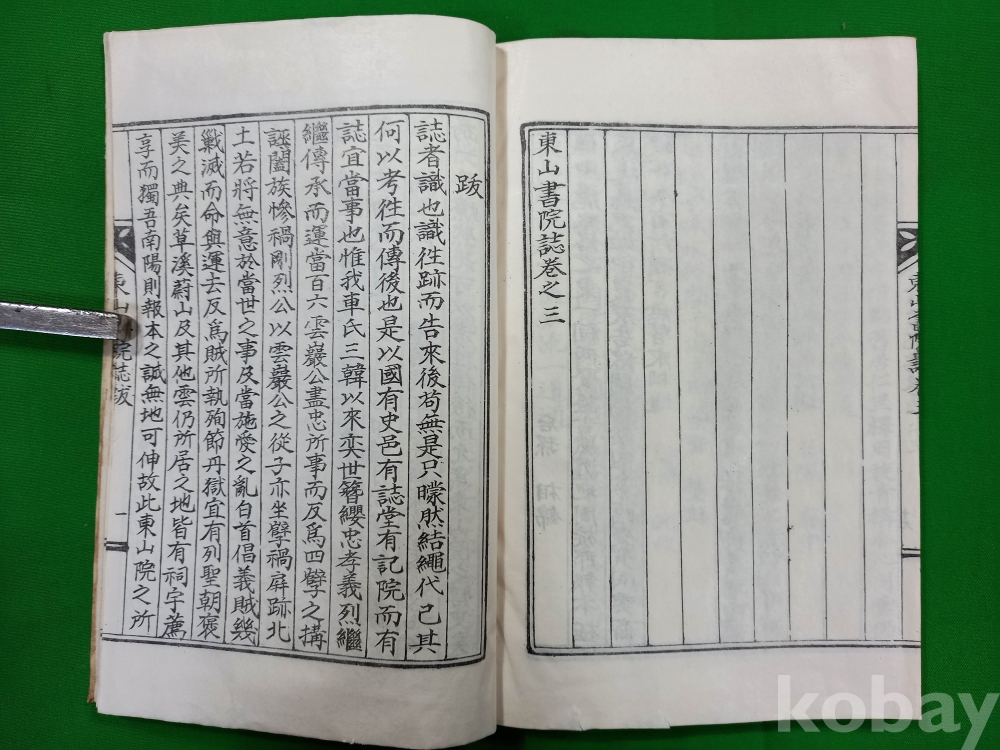 東山書院誌卷之三
跋
誌者識也識徃跡而告來後苟無是只矇然結繩代已其
何以考徃而傳後也是以國有史邑有誌堂有記院而有
誌宜當事也惟我車氏三韓以來奕世簪纓忠孝義烈繼
繼傳承而運當百六雲巖公盡忠所事而反爲四孼之搆
誣闔族慘禍剛烈公以雲巖公之從子亦坐孼禍屛跡北
土若將無意於當世之事及當施愛之亂白首倡義賊幾
殲滅而命與運去反爲賊所執殉節丹獄宜有列聖朝褒
美之典矣草溪蔚山及其他雲仍所居之地皆有祠宇薦
享而獨吾南陽則報本之誠無地可伸故此東山院之所
東山 院誌跋
一
kobay